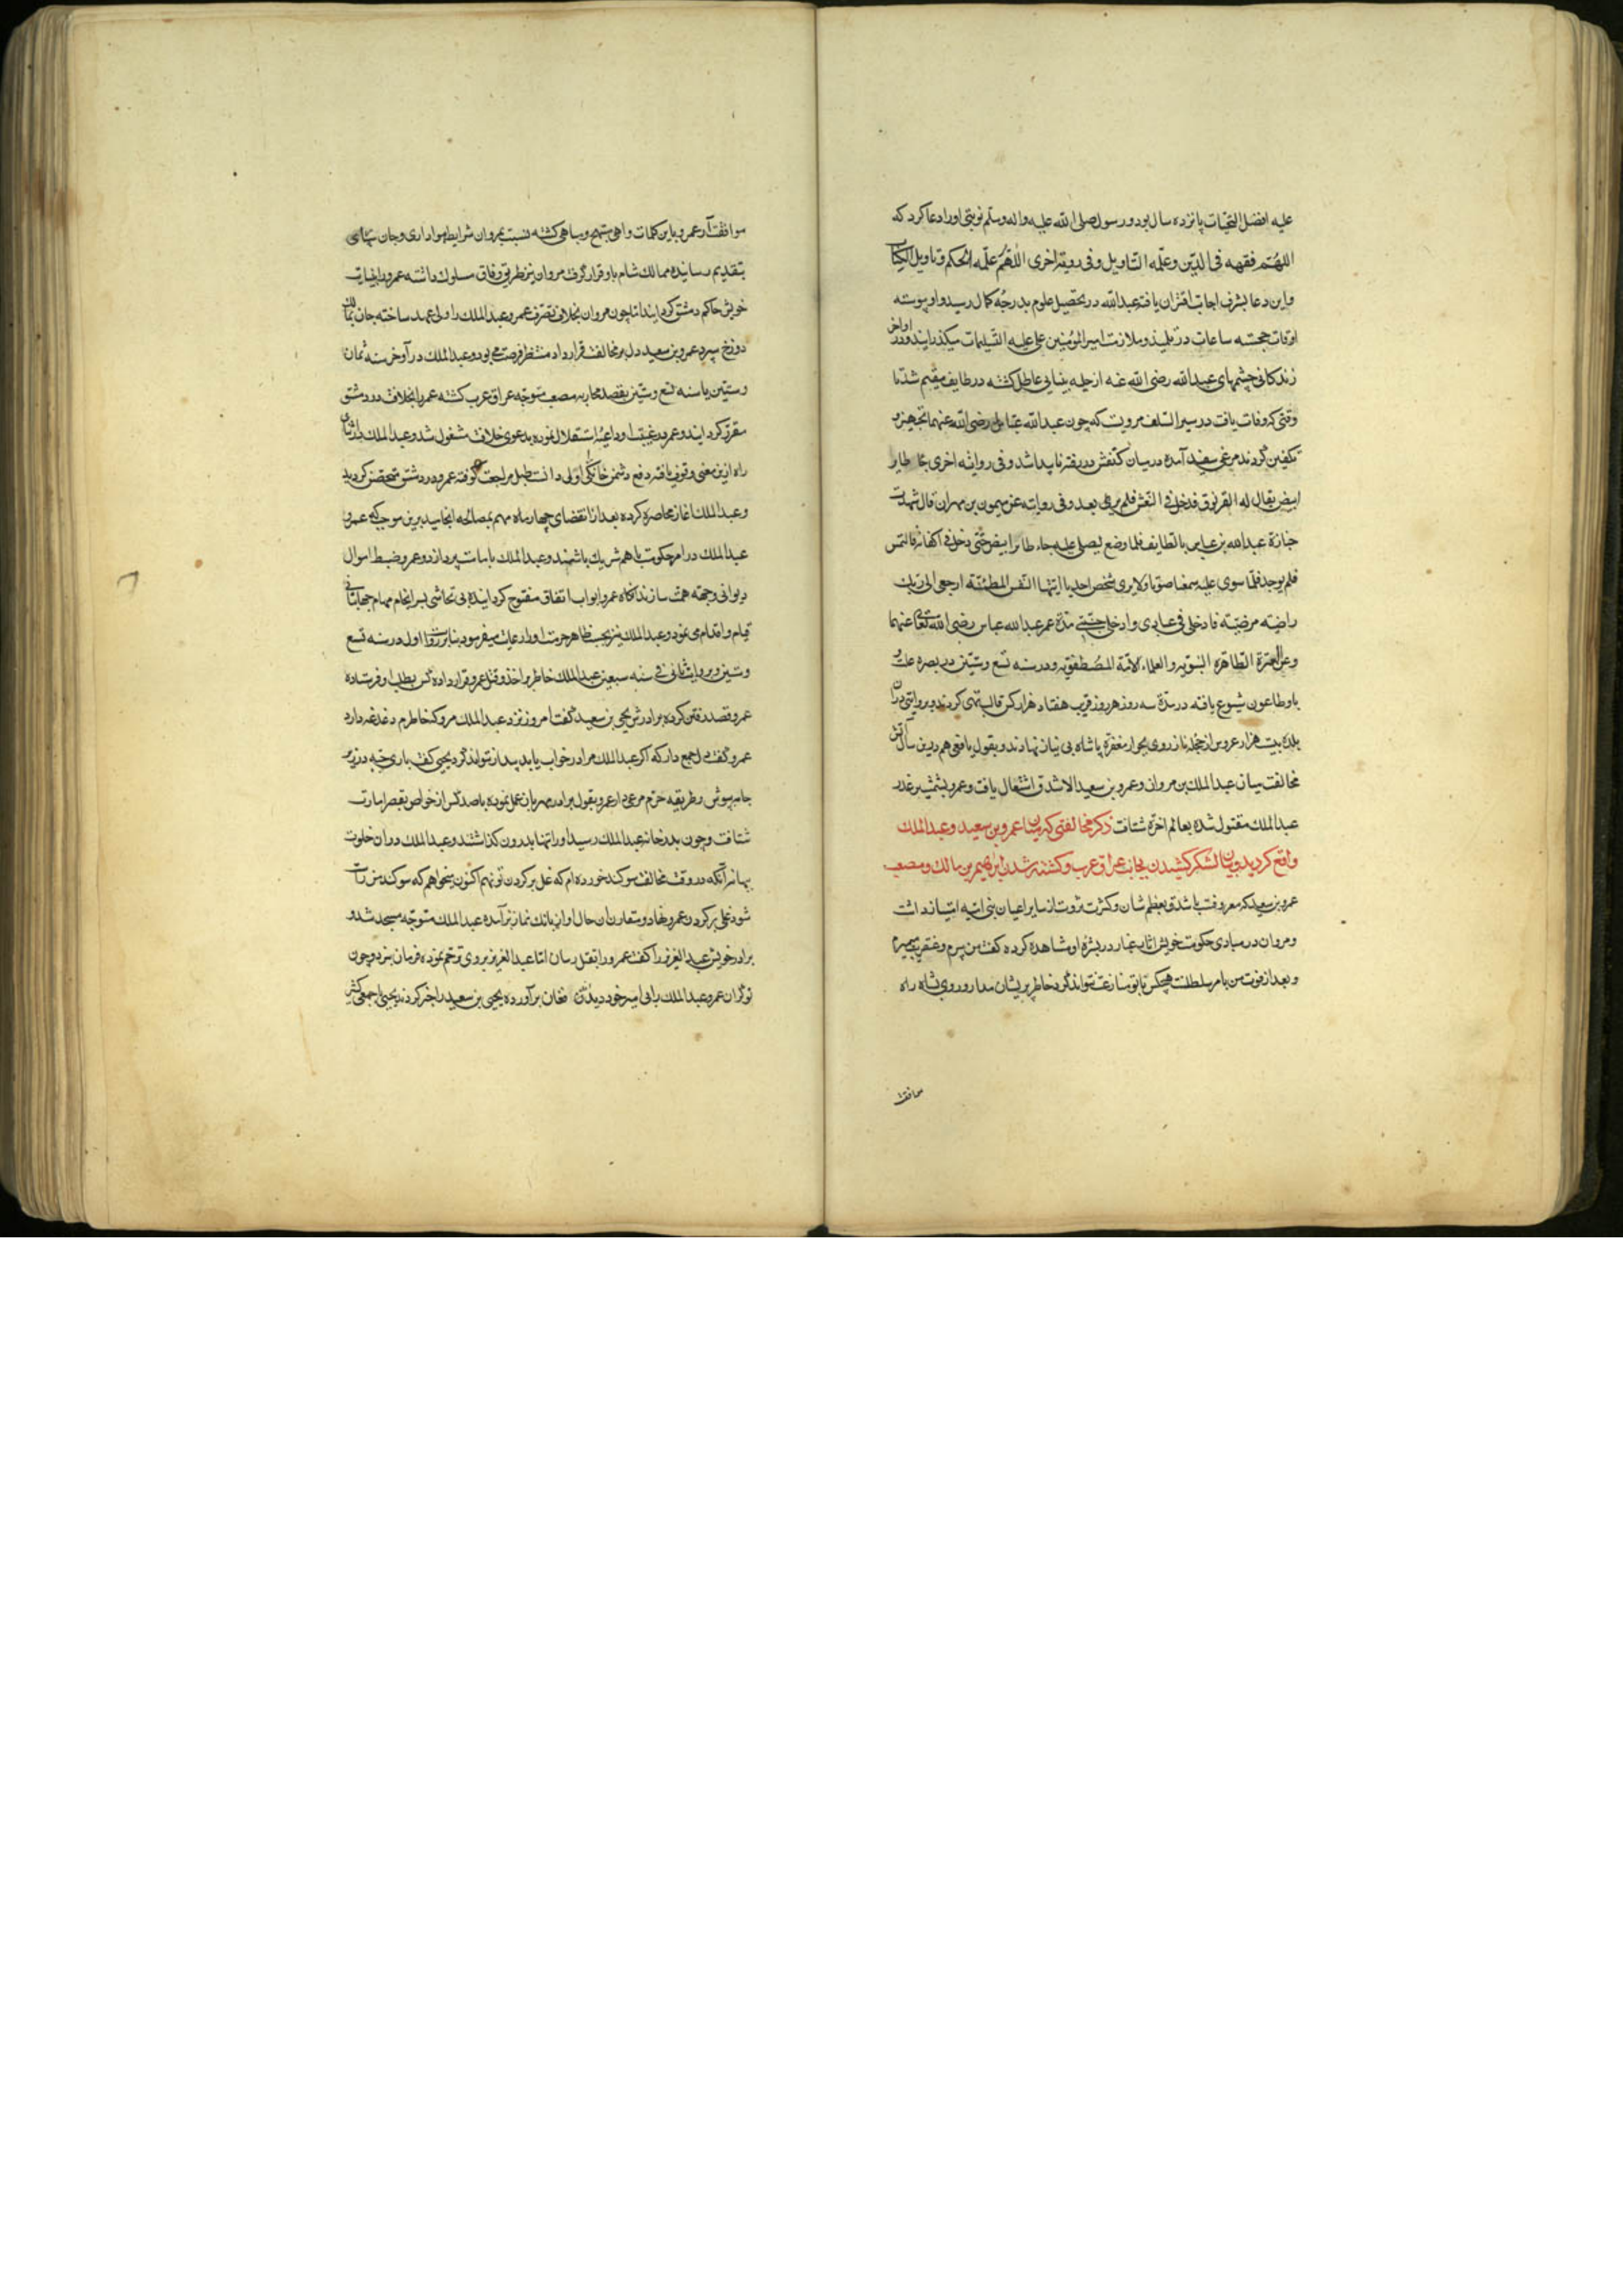 علیه افضل التحیات پانزده سال بود و رسول صلی الله علیه و اله وسلم نوبتی اورا دعا کرد که
اللهم فقهه فی الدین و علمه التاویل و فی روایة اخری اللهم علمه الحکم و تاویل الکتاب
و این دعا بشرف اجابت اقتران یافته عبدالله در تحصیل علوم بدرجه کمال رسید و او پیوسته
اوقات خجسته ساعات در تلمیذ و ملازمت امیرالمؤمنین علی علیه التسلیمات میکذرانید و در اواخر
زندکانی چشمهای عبدالله رضی الله عنه از حلیه بینایی عاطل کشته در طایف مقیم شد تا
وقتی که وفات یافت در سیر السلف مرویست که چون عبدالله عباس رضی الله عنهما تجهیز و
تکفین کردند مرغی سفید آمده درمیان کفنش در رفته ناپیدا شد و فی روایة اخری جا طایر
ابیض یقال له الغرنوق فدخل فی النعش فلم یر بعد و فی روایته عن میمون بن مهران قال شهدت
جنازة عبدالله بن عباس بالطایف فلما وضع لیصلی علیه جاء طایر ابیض حتی دخل فی اکفانه فالتمس
فلم یوجد فلما سوی علیه سمعنا صوتا ولا یری شخص احد یا ایتها النفس المطمئنة ارجعی الی ربک
راضیة مرضیة فادخلی فی عبادی وادخلی جنتی مدة عمر عبدالله عباس رضی الله تعالی عنهما
و عن العترة الطاهره النبویه والعلماء الامة المصطفویه و در سنه تسع و ستین در بصره علت
با و طاعون شیوع یافته در مدة سه روز هر روز قریب هفتاد هزار کس قالب تهی کردند و بروایتی دران
بلده بیست هزار عروس از حجله ناز روی بجوار مغفرة پاشاه بی نیاز نهادند و بقول یافعی هم درین سال آتش
مخالفت میان عبدالملک بن مروان و عمرو بن سعید الاشدق اشتعال یافت و عمرو بشمشیر غدر
عبدالملک مقتول شده بعالم اخرة شتافت ذکر مخالفتی که میان عمرو بن سعید و عبدالملک
واقع کردید و بیان لشکر کشیدن بجانب عراق عرب و کشته شدن ابرهیم بن مالک و مصعب
عمرو بن سعید که معروفست باشدق بعظم شان و کثرت ثروت از سایر اعیان بنی امیه امتیاز داشت
و مروان در مبادی حکومت خویش اثار غبار در بشره او مشاهده کرده کفت من پیرم و عنقریب میرم
و بعد از فوت من با مر سلطنت هیچکس با تو منازعت نتواند کرد خاطر پریشان مدار و روی بشاه راه
موافقت
موافقت آر عمرو باین کلمات واهی مبتهج و مباهی کشته نسبت بمروان شرایط هواداری و جان سپاری
بتقدیم رسانید و ممالک شام باو قرار کرفت مروان نیز بطریق وفاق سلوک داشته عمرو را بنیابت
خویش حاکم دمشق کردانید اما چون مروان بخلاف تصرف عمرو عبدالملک را ولی عهد ساخته جان بمالک
دوزخ سپرد عمرو بن سعید دل بر مخالفت قرار داد منتظر فرصت می بود و عبدالملک در آوخر سنه ثمان
و ستین یا سنه تسع و ستین بقصد محاربه مصعب متوجه عراق عرب کشته عمر بالخلافت در دمشق
مقرر کردانید و عمرو در غیبت او داعیه استقلال نموده بدعوی خلافت مشغول شد و عبدالملک در اثنای
راه ازین معنی وقوف یافته دفع دشمن خانکی اولی دانست طبل مراجعت کوفته عمرو در دمشق متحصن کردید
و عبدالملک اغاز محاصره کرده بعد از انقضای چهار ماه مهم بمصالحه انجامید برین موجب که عمرو
عبدالملک در امر حکومت باهم شریک باشند و عبدالملک بامامت پردازد و عمرو ضبط اموال
دیوانی وجهه همت سازد انکاه عمرو ابواب اتفاق مفتوح کردانیده بی تحاشی بسرانجام مهام جهانبانی
قیام و اقدام می نمود و عبدالملک نیز بحسب ظاهر حرمت او رارعایت میفرمود بنابر روایت اول در سنه تسع
و ستین و بروایت ثانی فی سنه سبعین عبدالملک خاطر بر اخذ و قتل عمرو قرار داده کس بطلب او فرستاده
عمرو قصد رفتن کرده برادرش یحیی بن سعید کفت امروز نزد عبدالملک مرو که خاطرم دغدغه دارد
عمرو کفت دل جمع دار که اکر عبدالملک مرا در خواب یابد بیدار نتواند کرد یحیی کفت باری جبه در زیر
جامه بپوش و طریقه حزم مرعی دار عمرو بقول برادر مهربان عمل نموده با صد کس از خواص بقصر امارت
شتافت و چون بدرخانه عبدالملک رسید او را تنها بدرون کذاشتند و عبدالملک در ان خلوت
بهانه آنکه در وقت مخالفت سوکند خورده ام که غل بر کردن تو نهم اکنون میخواهم که سوکند من راست
شود غل بر کردن عمرو نهاد و مقارن ان حال اواز بانک نماز بر آمده عبدالملک متوجه مسجد شد و
برادر خویش عبدالعزیز را کفت عمرو را بقتل رسان اما عبدالعزیز بروی ترحم نموده فرمان نبرد و چون
نوکران عمرو عبدالملک را بی امیر خود دیدند فغان بر آورده یحیی بن سعید را خبر کردند یحیی با جمعی کثیر